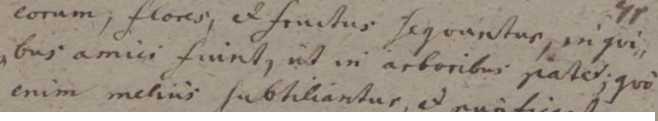 eorum, flores, et fructus sequantur, in qui„
bus amici fuint, ut in arboribus patet; quò
enim meliùs subtiliantur, et